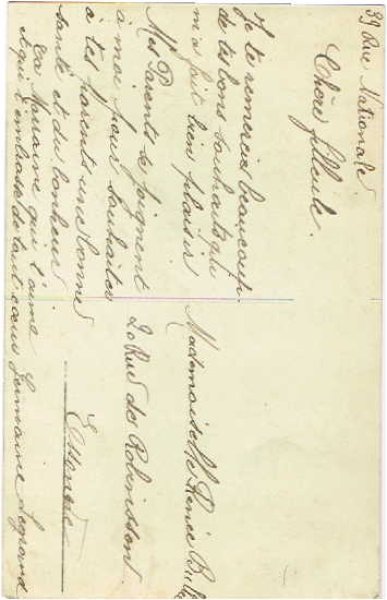 39 Rue Nationale
Chère filleule.
Je te remercie beaucoup
de tes bons souhaits qui
m'a fait bien plaisir
Mes Parents se joignent
à moi pour souhaiter
à tes parents une bonne
santé et du bonheur
Ta Marraine qui t'aime
et qui t'embrasse de tout cœur Germaine Legrand
Mademoiselle Renée
20 Rue des Robinsson
Essonne